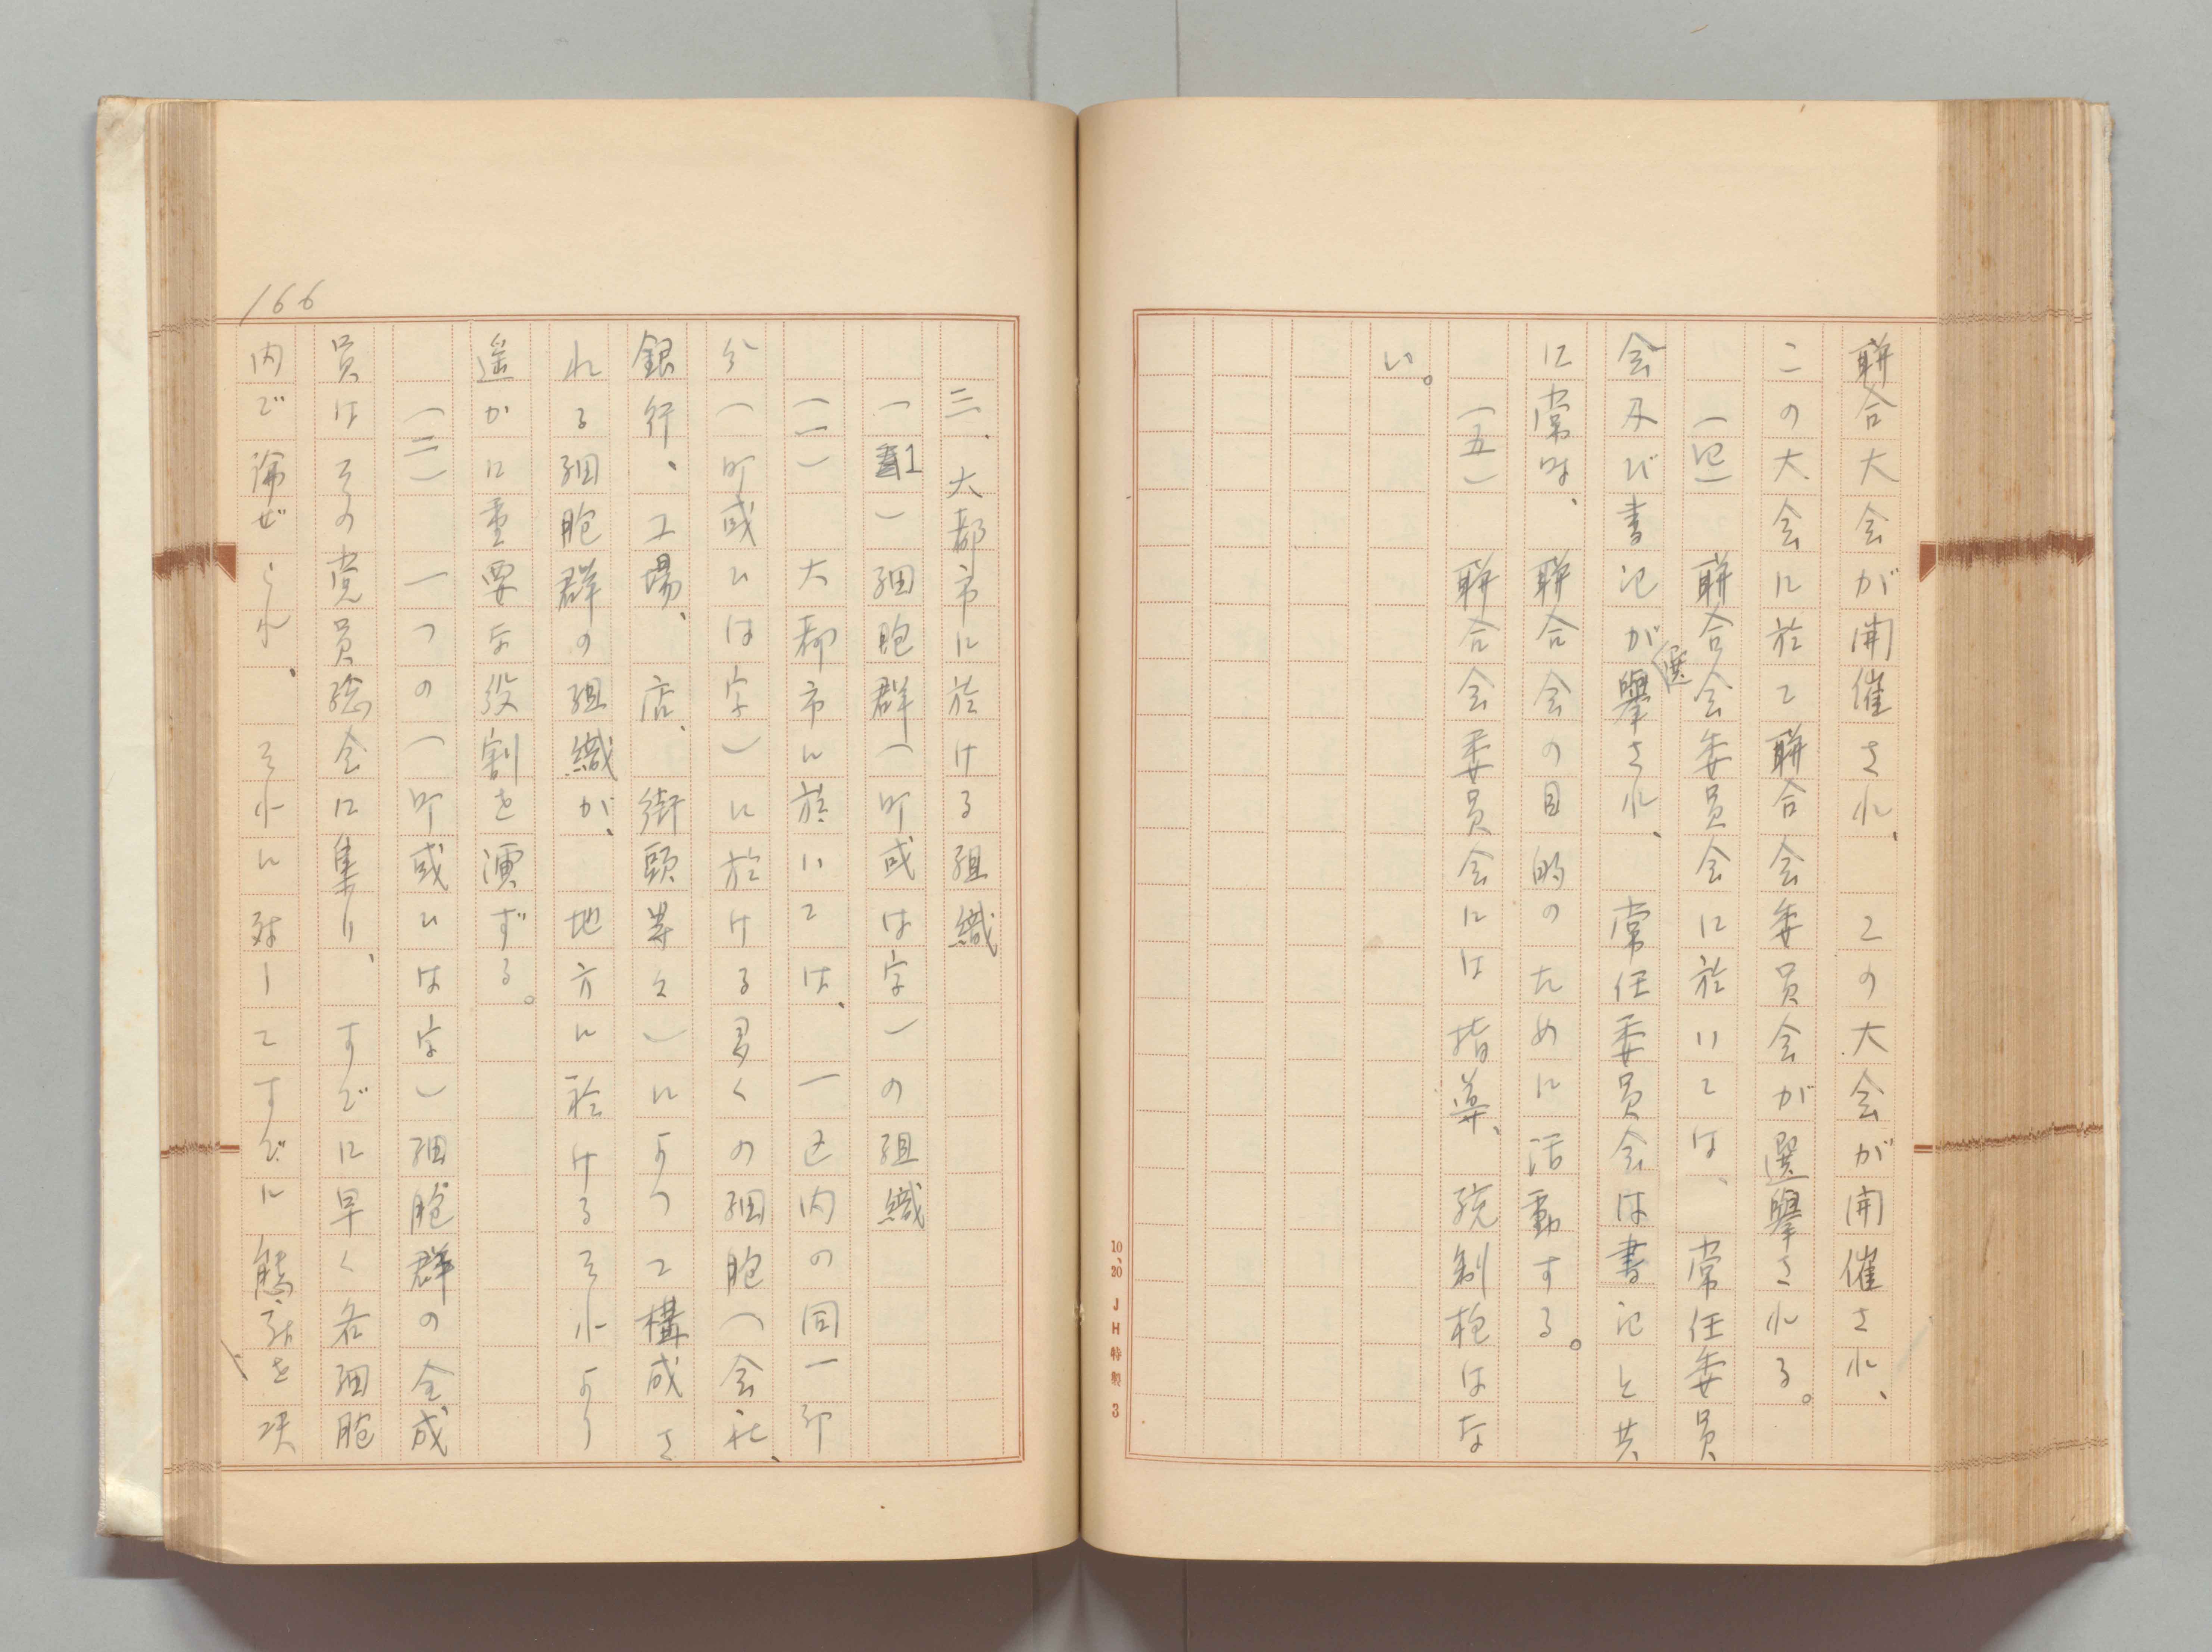 聯合大会が開催され、この大会が開催され、
この大会に於て聯合会委員会が選擧される。
(四) 聯合会委員会に於いては、常任委員
会及び書記が選擧され、常任委員会は書記と共
に常時、聯合会の目的のために活動する。
(五) 聯合会委員会には指導、統制権はな
い。
10、20 JH特製 3
三、大都市に於ける組織
(1)細胞群(町或は字)の組織
(一) 大都市に於いては、一区内の同一部
分(町或ひは字)に於ける多くの細胞(会社、
銀行、工場、店、街頭等々)によつて構成さ
れる細胞群の組織が、地方に於けるそれより
遥かに重要な役割を演ずる。
(二) 一つの(町或ひは字)細胞群の全成
員はその党員総会に集り、すでに早く各細胞
内で論ぜられ、それに対してすでに態度を決
166